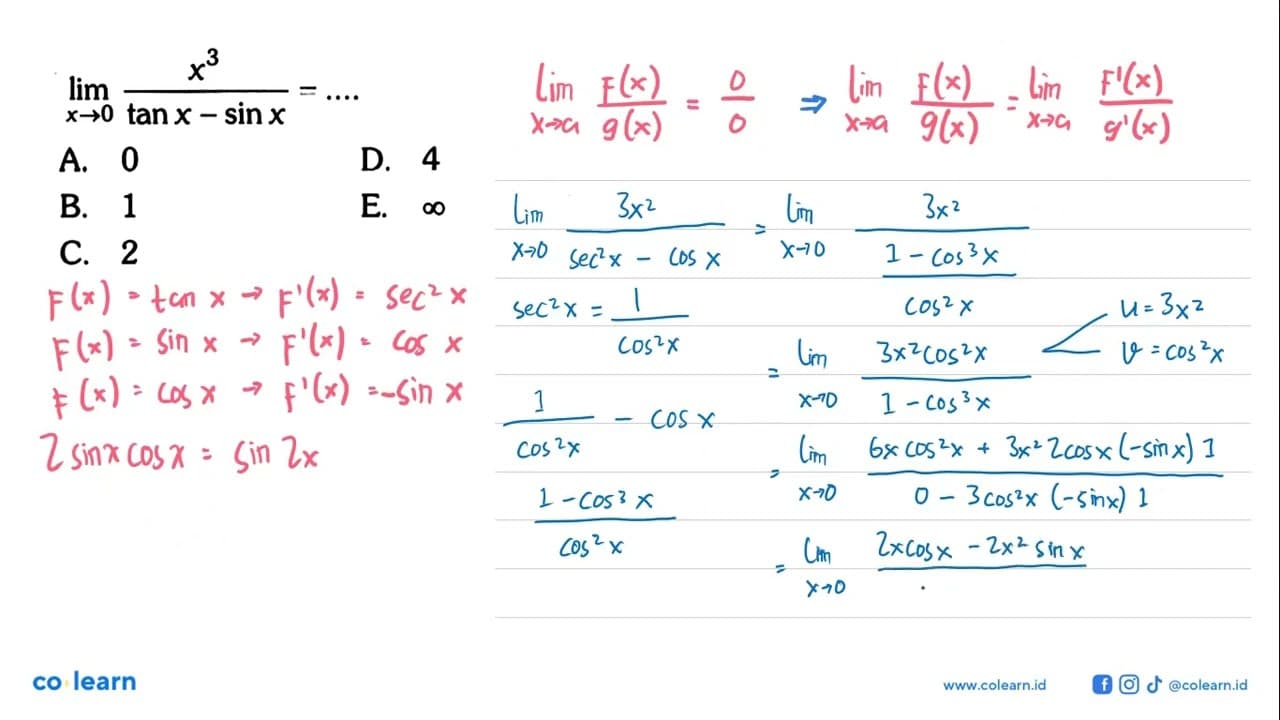 lim x→0 x³ / (tan x − sin x) = ....
A. 0
B. 1
C. 2
D. 4
E. ∞
F(x) = tan x → F'(x) = sec² x
F(x) = sin x → F'(x) = cos x
F(x) = cos x → F'(x) = −sin x
2 sin x cos x = sin 2x
lim x→a F(x)/g(x) = 0/0 ⇒ lim x→a F(x)/g(x) = lim x→a F'(x)/g'(x)
lim x→0 3x² / (sec²x − cos x) = lim x→0 3x² / ((1 − cos³x) / cos²x)
sec²x = 1 / cos²x
1 / cos²x − cos x
(1 − cos³x) / cos²x
= lim x→0 3x² cos²x / (1 − cos³x)
u = 3x²
v = cos²x
= lim x→0 (6x cos²x + 3x² 2cos x (−sin x) 1) / (0 − 3cos²x (−sin x) 1)
= lim x→0 2x cos x − 2x² sin x
co learn
www.colearn.id
@colearn.id